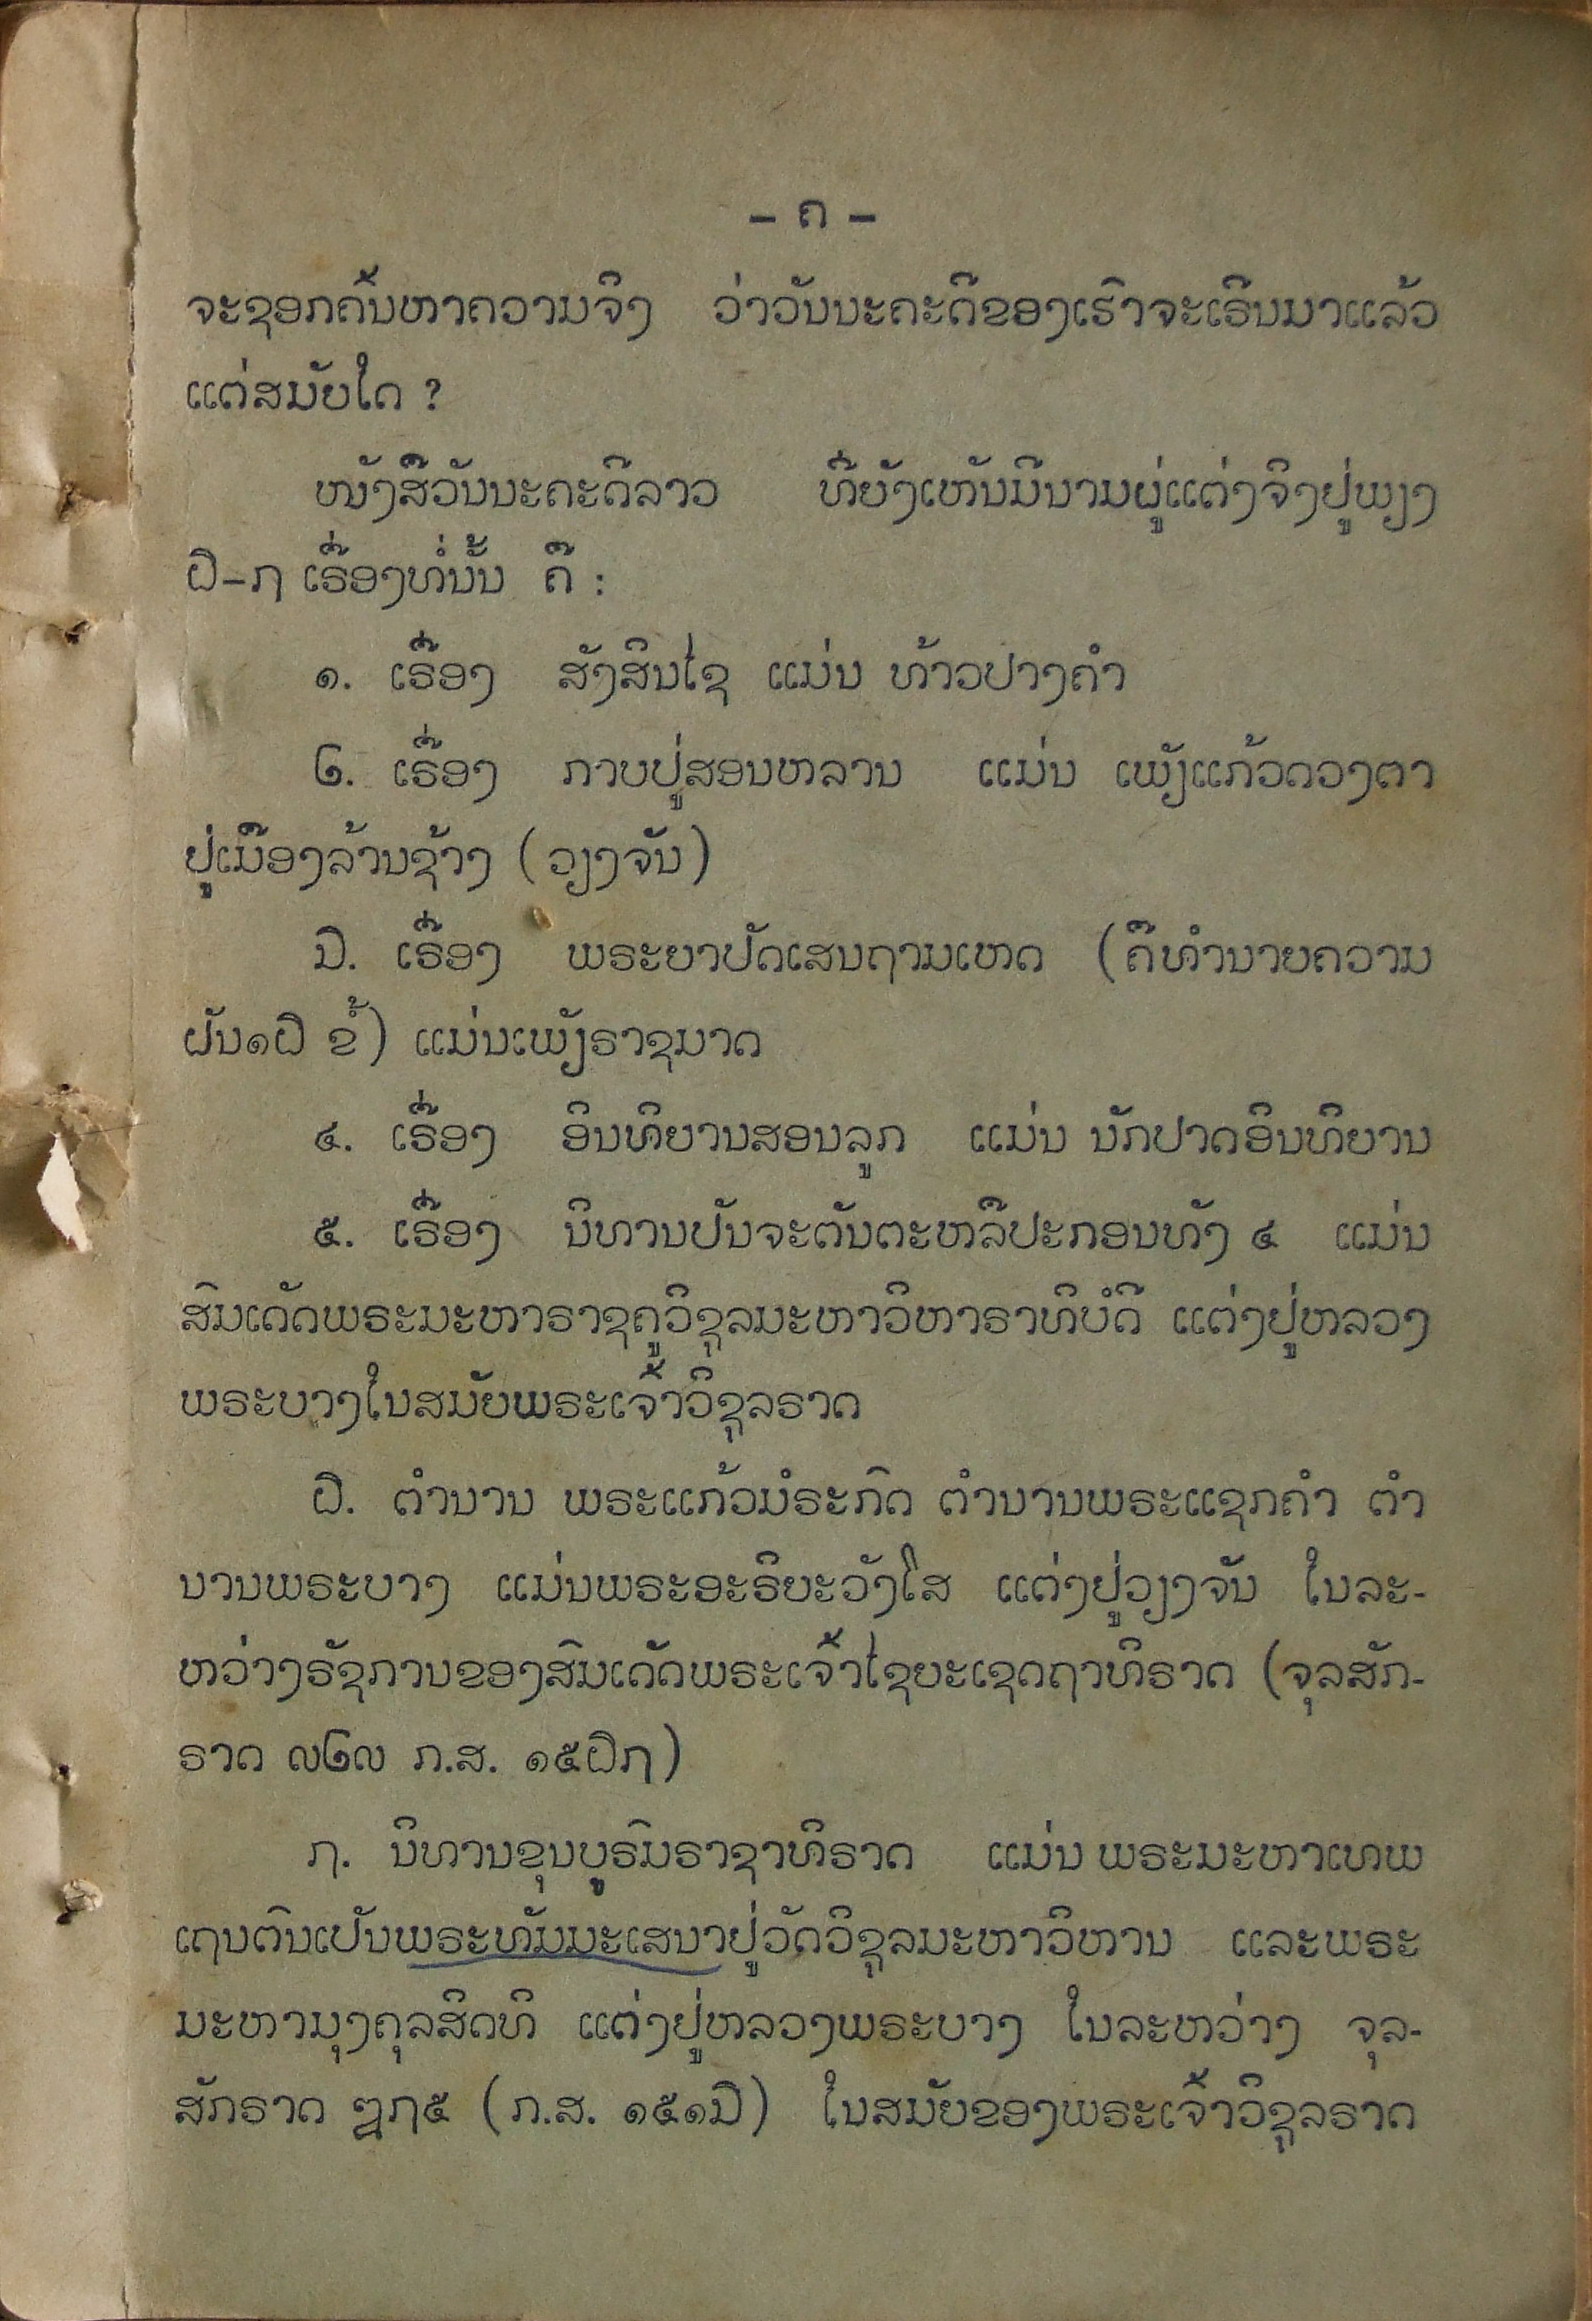 – ຄ –
ຈະຊອກຄົ້ນຫາຄວາມຈິງ ວ່າວັນນະຄະດີຂອງເຮົາຈະເຣີນມາແລ້ວ
ແຕ່ສມັຍໃດ ?
ໜັງສືວັນນະຄະດີລາວ ທີ່ຍັງເຫັນມີນາມຜູ່ແຕ່ງຈິງຢູ່ພຽງ
໖–໗ ເຣື່ອງທໍ່ນັ້ນ ຄື :
໑. ເຣື່ອງ ສັງສິນໄຊ ແມ່ນ ທ້າວປາງຄຳ
໒. ເຣື່ອງ ກາບປູ່ສອນຫລານ ແມ່ນ ເພັງແກ້ວດວງຕາ
ຢູ່ເມືອງລ້ານຊ້າງ (ວຽງຈັນ)
໓. ເຣື່ອງ ພຣະຍາປັດເສນຖາມເຫດ (ຄືທຳນາຍຄວາມ
ຝັນ໑໖ ຂໍ້) ແມ່ນເພັງຣາຊມາດ
໔. ເຣື່ອງ ອິນທິຍານສອນລູກ ແມ່ນ ນັກປາດອິນທິຍານ
໕. ເຣື່ອງ ນິທານປັນຈະຕັນຕະຫລືປະກອນທັງ ໔ ແມ່ນ
ສົມເດັດພຣະມະຫາຣາຊຄູວິຊຸລມະຫາວິຫາຣາທິບໍດີ ແຕ່ງຢູ່ຫລວງ
ພຣະບາງໃນສມັຍພຣະເຈົ້າວິຊຸລຣາດ
໖. ຕຳນານ ພຣະແກ້ວມໍຣະກົດ ຕຳນານພຣະແຊກຄຳ ຕຳ
ນານພຣະບາງ ແມ່ນພຣະອະຣິຍະວັງໂສ ແຕ່ງຢູ່ວຽງຈັນ ໃນລະ-
ຫວ່າງຣັຊການຂອງສົມເດັດພຣະເຈົ້າໄຊຍະເຊດຖາທິຣາດ (ຈຸລສັກ-
ຣາດ ໙໒໙ ຄ.ສ. ໑໕໖໗)
໗. ນິທານຂຸນບູຣົມຣາຊາທິຣາດ ແມ່ນ ພຣະມະຫາເທພ
ເຖນຕົນເປັນພຣະທັມມະເສນາຢູ່ວັດວິຊຸລມະຫາວິຫານ ແລະພຣະ
ມະຫາມຸງຄຸລສິດທິ ແຕ່ງຢູ່ຫລວງພຣະບາງ ໃນລະຫວ່າງ ຈຸລ-
ສັກຣາດ ໘໗໕ (ຄ.ສ. ໑໕໑໓) ໃນສມັຍຂອງພຣະເຈົ້າວິຊຸລຣາດ